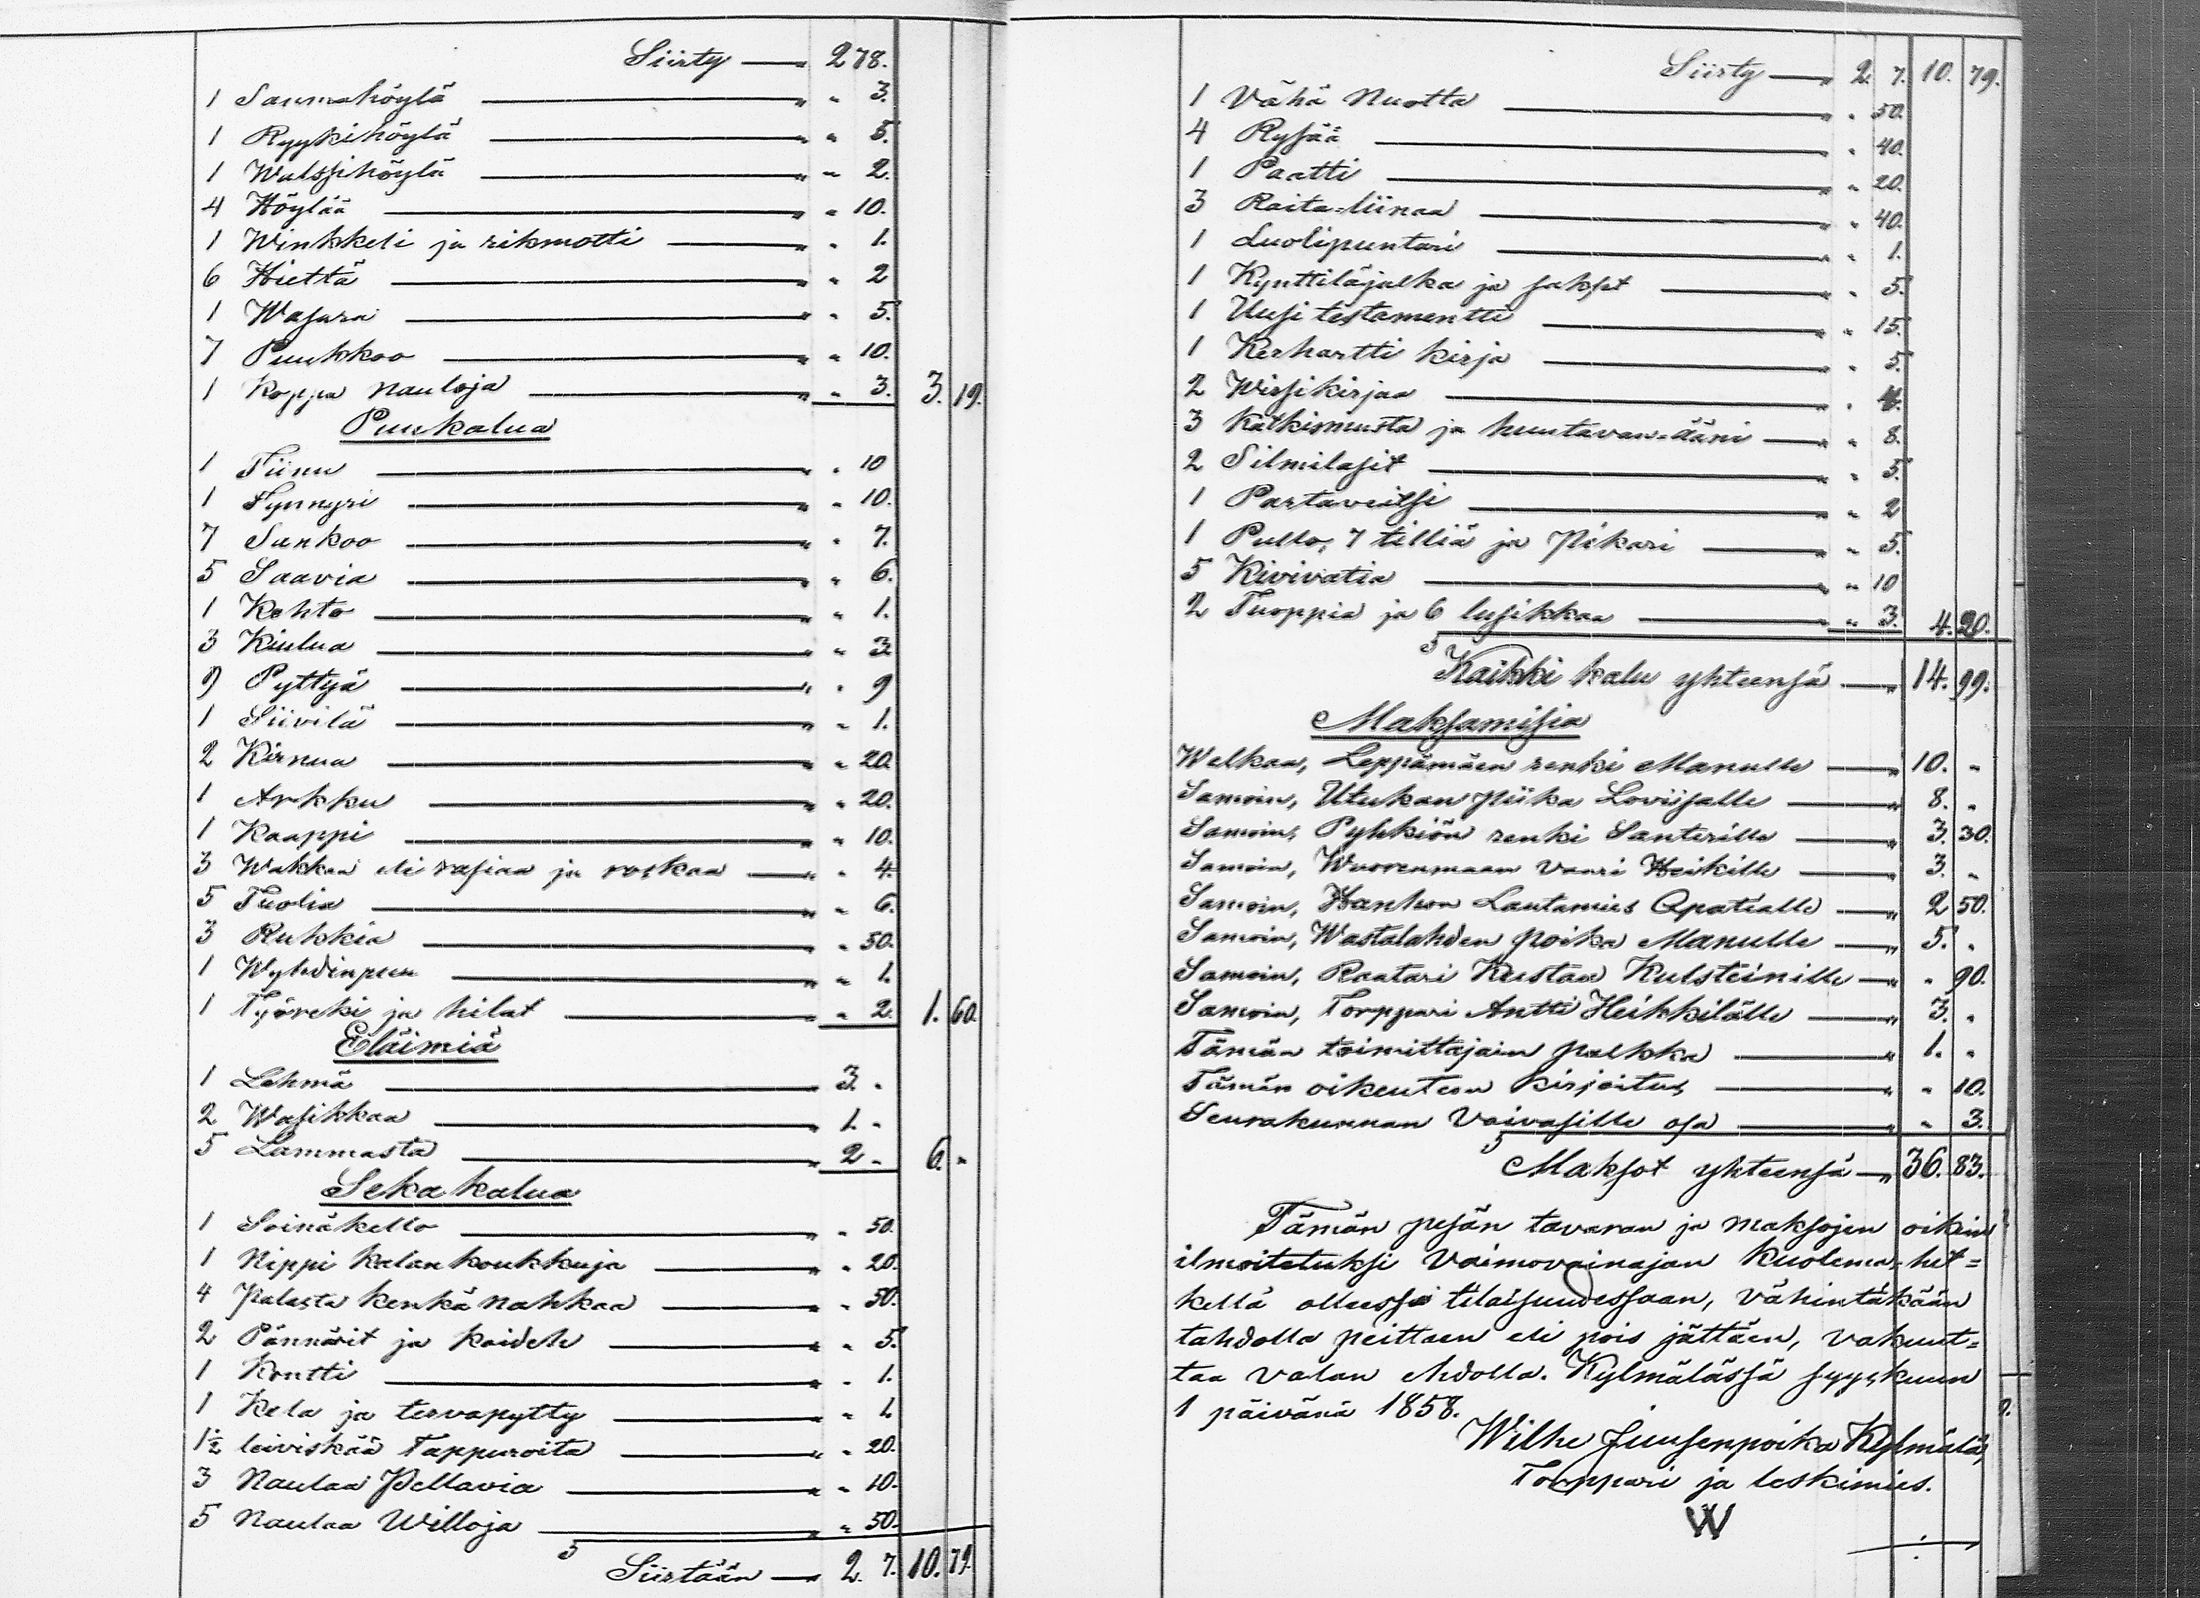 Siirty — 278.
1 Saumahöylä — " " 3.
1 Ryykihöylä — " " 5.
1 Walssihöylä — " " 2.
4 Höylää — " " 10.
1 Winkkeli ja rikmotti — " " 1.
6 Hiettä — " " 2
1 Wasara — " " 5.
7 Puukkoo — " " 10.
1 Koppa nauloja — " " 3. 3. 19.
Puukalua
1 Tiinu — " " 10
1 Tynnyri — " " 10.
7 Sankoo — " " 7.
5 Saavia — " " 6.
1 Kohto — " " 1.
3 Kiulua — " " 3
9 Pyttyä — " " 9
1 Siivilä — " " 1.
2 Kirnua — " " 20
1 Arkku — " " 20.
1 Kaappi — " " 10.
3 Wakkaa eli rasiaa ja roskaa — " " 4.
5 Tuolia — " " 6.
3 Rukkia — " " 50.
1 Wyhdinpuu — " " 1.
1 Työreki ja hilut — " " 2. 1. 60.
Eläimiä
1 Lehmä — 3. "
2 Wasikkaa — 1. "
5 Lammasta — 2 " 6. "
Sekakalua
1 Seinäkello — " " 50.
1 Nippi kalankoukkuja — " " 20.
4 Palasta kenkänahkaa — " " 50.
2 Pännärit ja kaideh — " " 5.
1 Kontti — " " 1.
1 Kela ja tervapytty — " " 1.
1½ leiviskää Tappuroita — " " 20.
3 Naulaa Pellavia — " " 10.
5 Naulaa Willoja — " " 50.
Siirtään — 2. 7. 10. 79.
Siirty — " 2. 7. 10. 79.
1 Vähä Nuotta — " " 50.
4 Rysää — " " 40.
1 Paatti — " " 20.
3 Raita=liinaa — " " 40.
1 Luolipuntari — " " 1.
1 Kynttiläjalka ja sakset — " " 5.
1 Uusi testamentti — " " 15.
1 Kerhartti kirja — " " 5.
2 Wirsikirjaa — " " 4.
3 Katkismusta ja huutavan=ääni — " " 8.
2 Silmilasit — " " 5.
1 Partaveitsi — " " 2
1 Pullo, 7 tilliä ja Pikari — " " 5.
5 Kivivatia — " " 10
2 Tuoppia ja 6 lusikkaa — " " 3. 4. 20.
Kaikki kalu yhteensä — " 14. 99.
Maksamisia
Welkaa, Leppämäen renki Manulle — " 10. "
Samoin, Utukan piika Loviisalle — " 8. "
Samoin, Pyhkiön renki Santerille — " 3. 30.
Samoin, Wuorenmaan vaari Heikille — " 3. "
Samoin, Hanhon Lautamies Apatialle — " 2 50.
Samoin, Wastalahden poika Manulle — " 5. "
Samoin, Raatari Kustaa Kulsteinille — " " 90.
Samoin, Torppari Antti Heikkilälle — " 3. "
Tämän toimittajain palkka — " 1. "
Tämän oikeuteen kirjoitus, — " " 10.
Seurakunnan Vaivasille osa — " " 3.
Maksot yhteensä — " 36. 83.
Tämän pesän tavaran ja maksojen oikein
ilmoitetuksi Vaimovainajan kuolema=het=
kellä olleessa tilaisuudessaan, vähintäkään
tahdolla peittäen eli pois jättäen, vakuut=
taa valan ehdolla. Kylmälässä syyskuun
1 päivänä 1858.
Wilhe Juusenpoika Kylmälä,
Torppari ja leskimies.
W